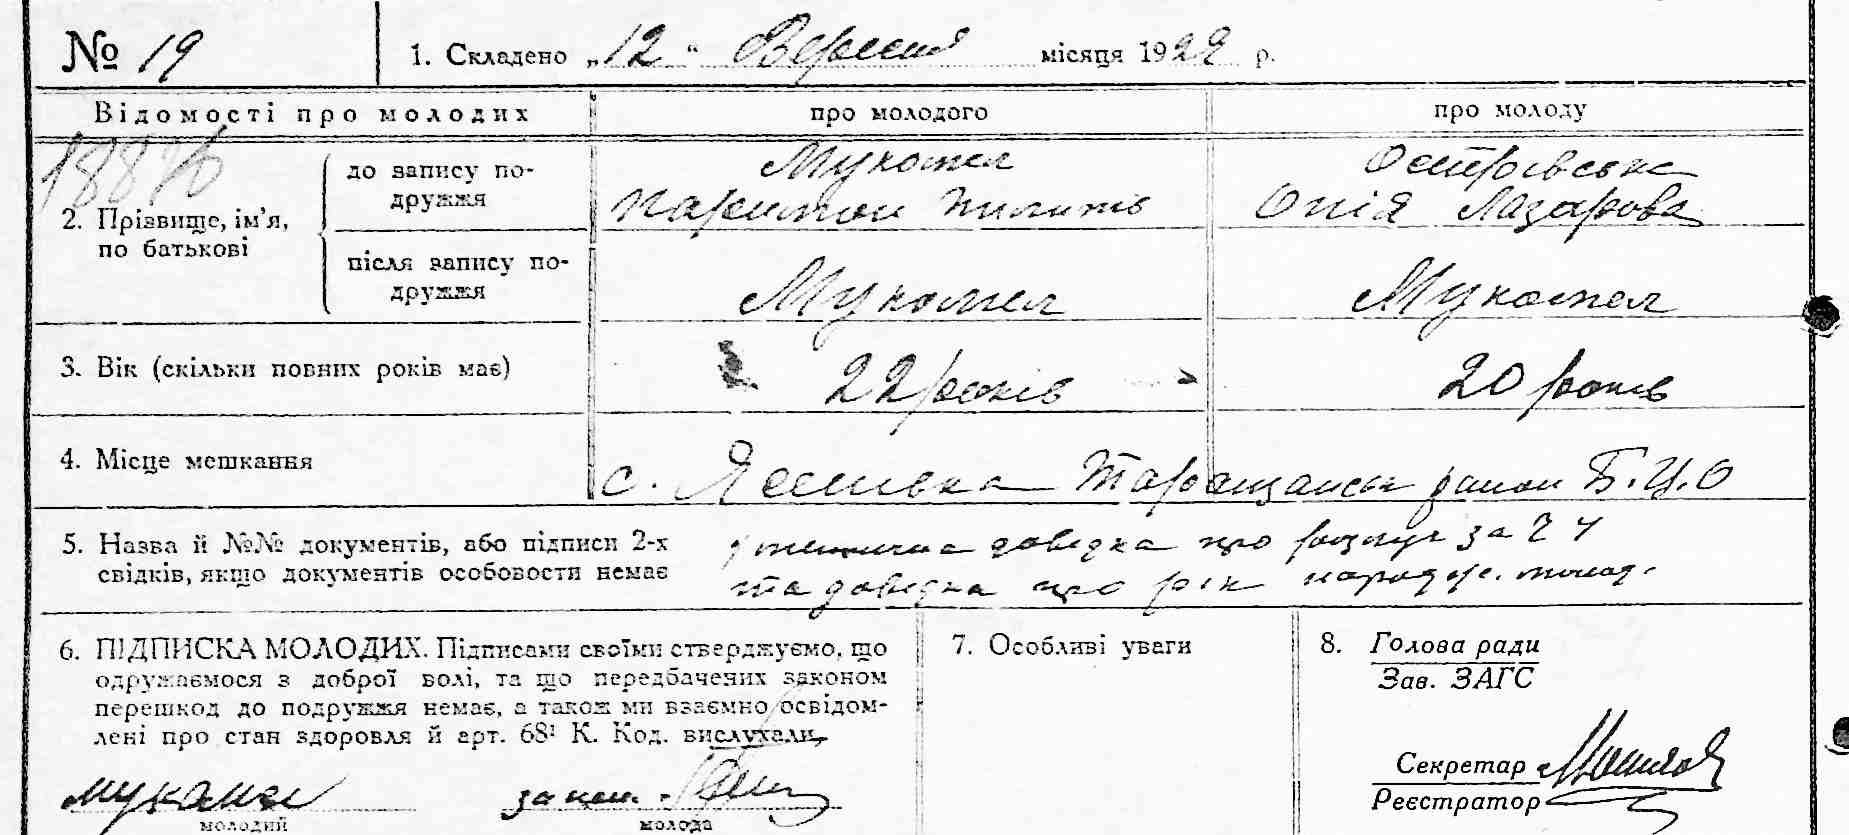 № 19
1. Складено „12" Вересня місяця 1929 р.
Відомості про молодих
про молодого
про молоду
2. Прізвище, ім'я, по батькові
до запису по-
дружжя
Мукомел
Харитон Пилипів
Остр́івська
Онія Лазарова
після запису по-
дружжя
Мукомел
Мукомел
3. Вік (скільки повних років має)
22 років
20 років
4. Місце мешкання
с. Яселівка Таращанськ район Б.Ц.О
5. Назва й №№ документів, або підписи 2-х
свідків, якщо документів особовости немає
довідка про за Ч 4
та довідка про рік народж. молод.
6. ПІДПИСКА МОЛОДИХ. Підписами своїми стверджуємо, що
одружаємося з доброї волі, та що передбачених законом
перешкод до подружжя немає, а також ми взаємно освідом-
лені про стан здоровля й арт. 68¹ К. Код. вислухали,
мукамел
молодий
за неп.
молода
7. Особливі уваги
8. Голова ради
Зав. ЗАГС
Секретар
Реєстратор